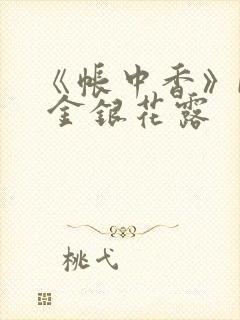 《帐中香》
金银花露
桃弋